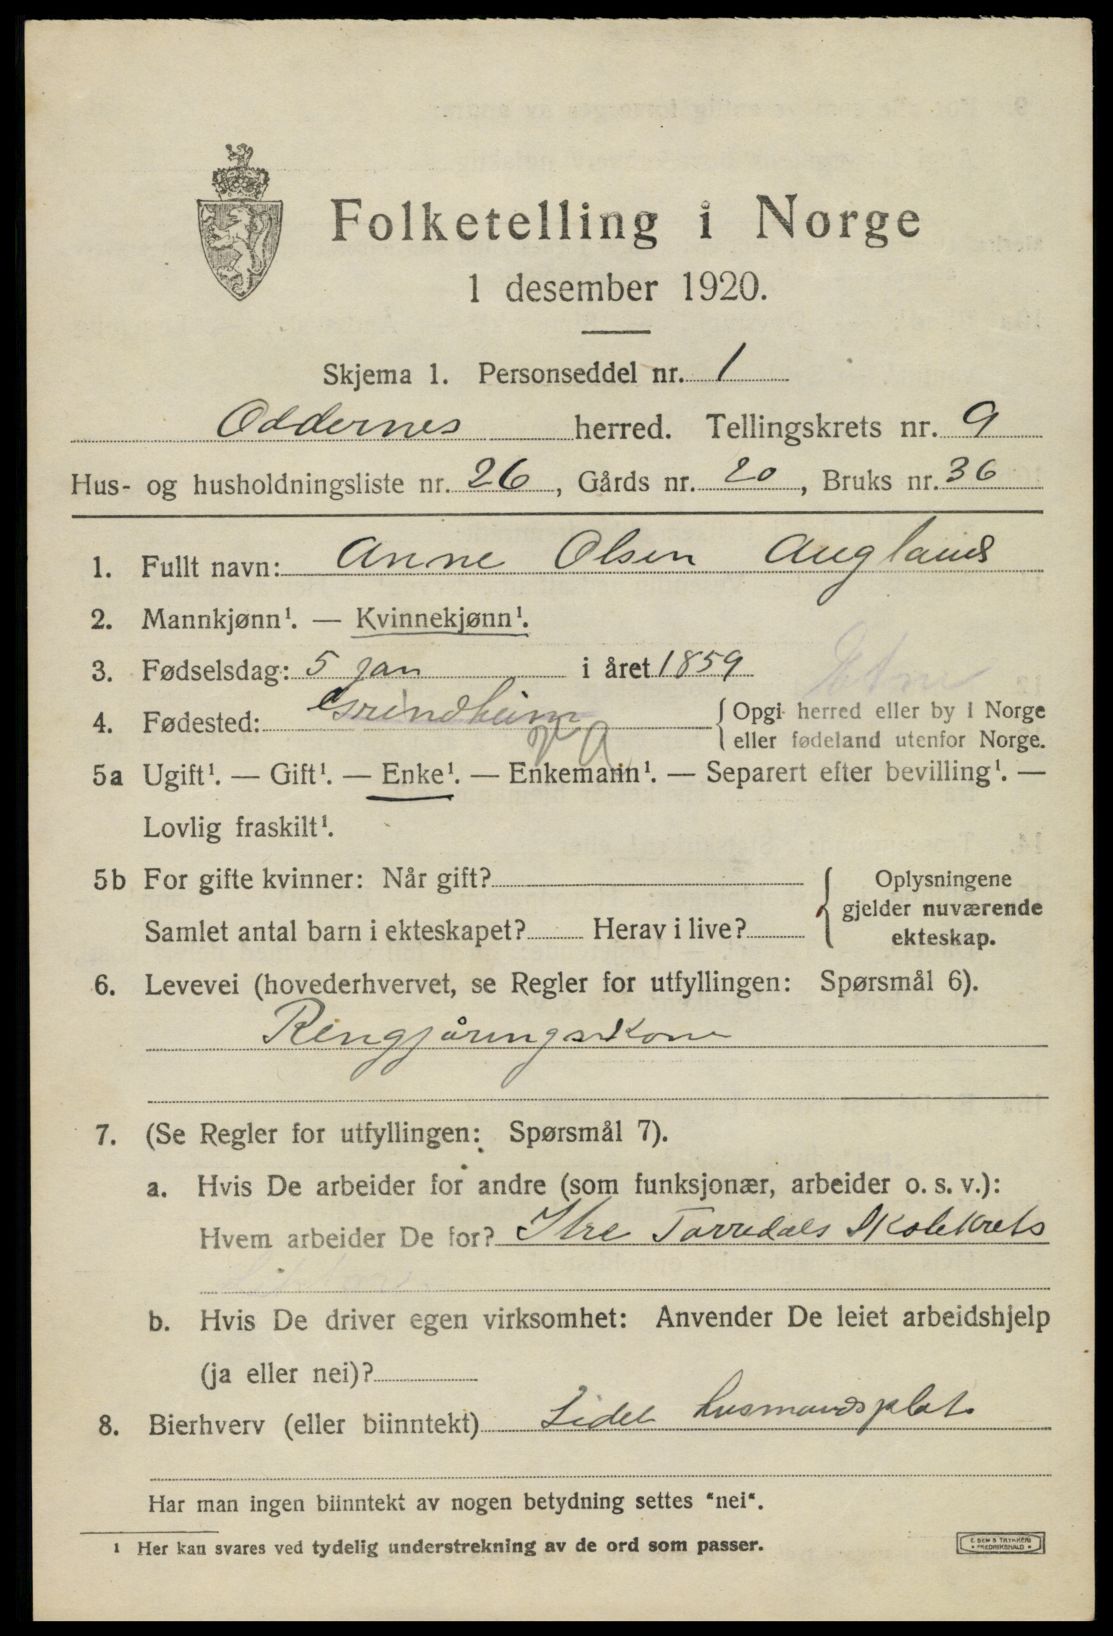 Folketelling i Norge
1 desember 1920.
Skjema 1. Personseddel nr. 1
Oddernes herred. Tellingskrets nr. 9
Hus- og husholdningsliste nr. 26, Gårds nr. 20, Bruks nr. 36
1. Fullt navn: Anne Olsen Augland
2. Mannkjønn¹. — Kvinnekjønn¹.
3. Fødselsdag: 5 jan i året 1859
4. Fødested: Grindheim { Opgi herred eller by i Norge
eller fødeland utenfor Norge.
VA
5a Ugift¹. — Gift¹. — Enke¹. — Enkemann¹. — Separert efter bevilling¹. —
Lovlig fraskilt¹.
5b For gifte kvinner: Når gift?
Samlet antal barn i ekteskapet? Herav i live?
Oplysningene
gjelder nuværende
ekteskap.
6. Levevei (hovederhvervet, se Regler for utfyllingen: Spørsmål 6).
Rengjåringskone
7. (Se Regler for utfyllingen: Spørsmål 7).
a. Hvis De arbeider for andre (som funksjonær, arbeider o. s. v.):
Hvem arbeider De for? Itre Torredals Skolekrets
b. Hvis De driver egen virksomhet: Anvender De leiet arbeidshjelp
(ja eller nei)?
8. Bierhverv (eller biinntekt) Lidet husmandsplat.
Har man ingen biinntekt av nogen betydning settes "nei".
¹ Her kan svares ved tydelig understrekning av de ord som passer.